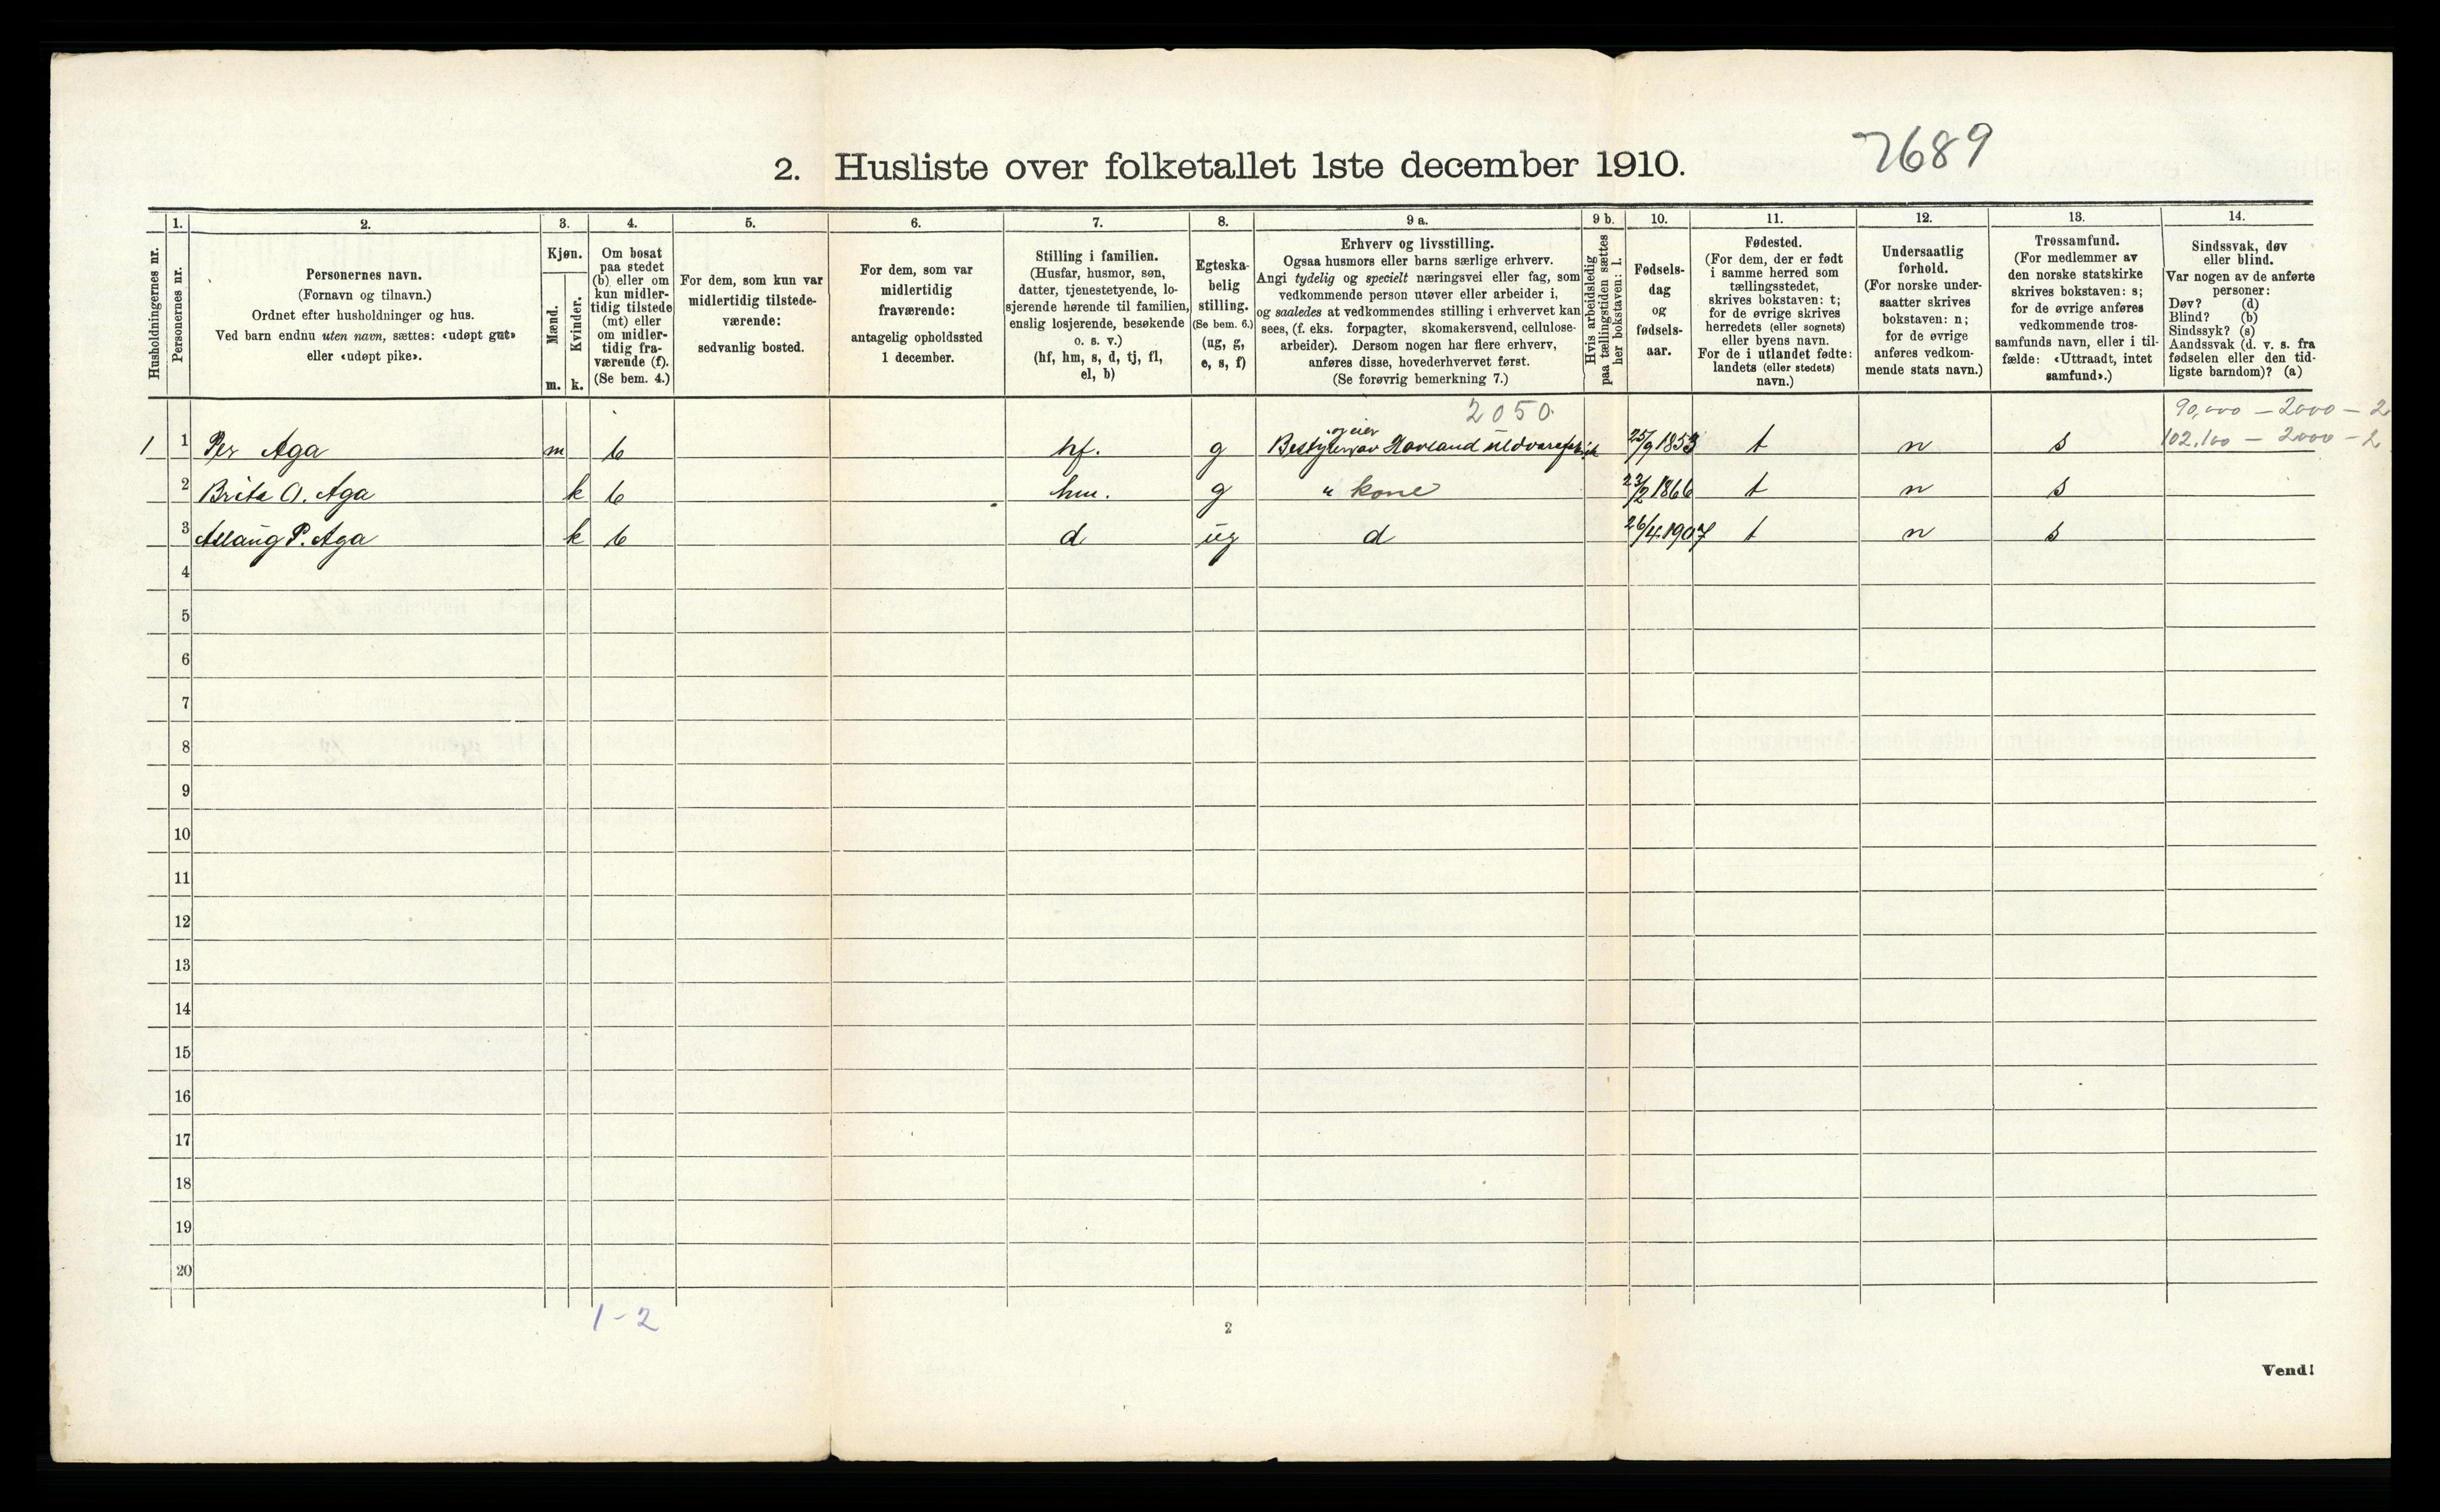 2. Husliste over folketallet 1ste december 1910.
7689
Husholdningernes nr.
1.
Personernes nr.
2.
Personernes navn.
(Fornavn og tilnavn.)
Ordnet efter husholdninger og hus.
Ved barn endnu uten navn, sættes: «udøpt gut»
eller «udøpt pike».
3.
Kjøn.
Mænd.
m.
Kvinder.
k.
4.
Om bosat
paa stedet
(b) eller om
kun midler-
tidig tilstede
(mt) eller
om midler-
tidig fra-
værende (f).
(Se bem. 4.)
5.
For dem, som kun var
midlertidig tilstede-
værende:
sedvanlig bosted.
6.
For dem, som var
midlertidig
fraværende:
antagelig opholdssted
1 december.
7.
Stilling i familien.
(Husfar, husmor, søn,
datter, tjenestetyende, lo-
sjerende hørende til familien,
enslig losjerende, besøkende
o. s. v.)
(hf, hm, s, d, tj, fl,
el, b)
8.
Egteska-
belig
stilling.
(Se bem. 6.)
(ug, g,
e, s, f)
9 a.
Erhverv og livsstilling.
Ogsaa husmors eller barns særlige erhverv.
Angi tydelig og specielt næringsvei eller fag, som
vedkommende person utøver eller arbeider i,
og saaledes at vedkommendes stilling i erhvervet kan
sees, (f. eks. forpagter, skomakersvend, cellulose-
arbeider). Dersom nogen har flere erhverv,
anføres disse, hovederhvervet først.
(Se forøvrig bemerkning 7.)
9 b.
Hvis arbeidsledig
paa tællingstiden sættes
her bokstaven: l.
10.
Fødsels-
dag
og
fødsels-
aar.
11.
Fødested.
(For dem, der er født
i samme herred som
tællingsstedet,
skrives bokstaven: t;
for de øvrige skrives
herredets (eller sognets)
eller byens navn.
For de i utlandet fødte:
landets (eller stedets)
navn.)
12.
Undersaatlig
forhold.
(For norske under-
saatter skrives
bokstaven: n;
for de øvrige
anføres vedkom-
mende stats navn.)
13.
Trossamfund.
(For medlemmer av
den norske statskirke
skrives bokstaven: s;
for de øvrige anføres
vedkommende tros-
samfunds navn, eller i til-
fælde: «Uttraadt, intet
samfund».)
14.
Sindssvak, døv
eller blind.
Var nogen av de anførte
personer:
Døv? (d)
Blind? (b)
Sindssyk? (s)
Aandssvak (d. v. s. fra
fødselen eller den tid-
ligste barndom)? (a)
2050.
90,000 — 2000 — 2
og eier
1 1 Per Aga m b hf. g Bestyrer av 25/9 1853 t n s 102.100 — 2000 — 2
2 Brita O. Aga k b hm. g " kone 23/2 1866 t n s
3 P. Aga k b d ug d 26/4 1907 t n s
4
5
6
7
8
9
10
11
12
13
14
15
16
17
18
19
20
1-2
2
Vend!